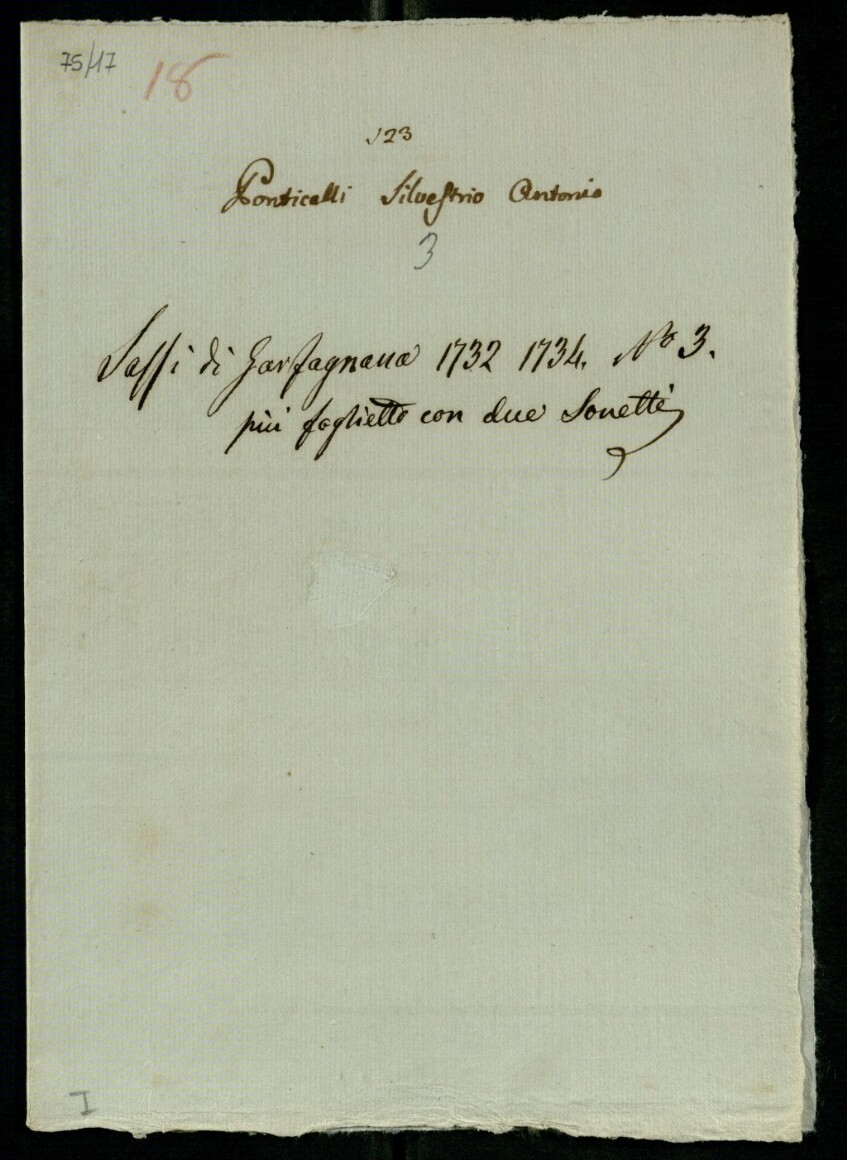 75/17 18
123
Ponticelli Silvestrio Antonio
3
Sassi di Garfagnana 1732 1734. No 3.
più foglietto con due Sonetti
I